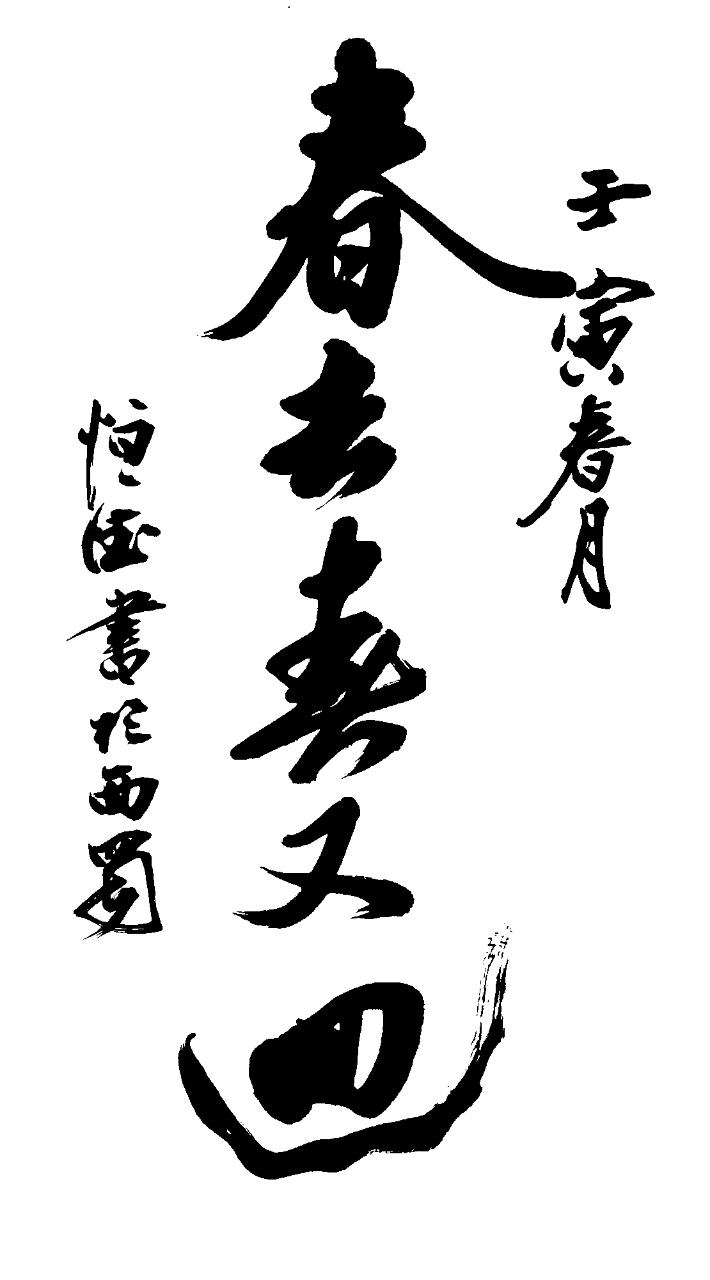 壬寅春月
春去春又回
恒德書於西蜀